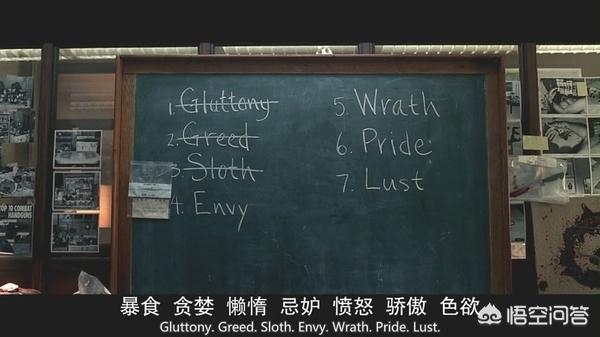 1. Gluttony
2. Greed
3. Sloth
4. Envy
5. Wrath
6. Pride
7. Lust
TOP 10 COMBAT
HANDGUNS
暴食 贪婪 懒惰 忌妒 愤怒 骄傲 色欲
Gluttony. Greed. Sloth. Envy. Wrath. Pride. Lust.
悟空问答